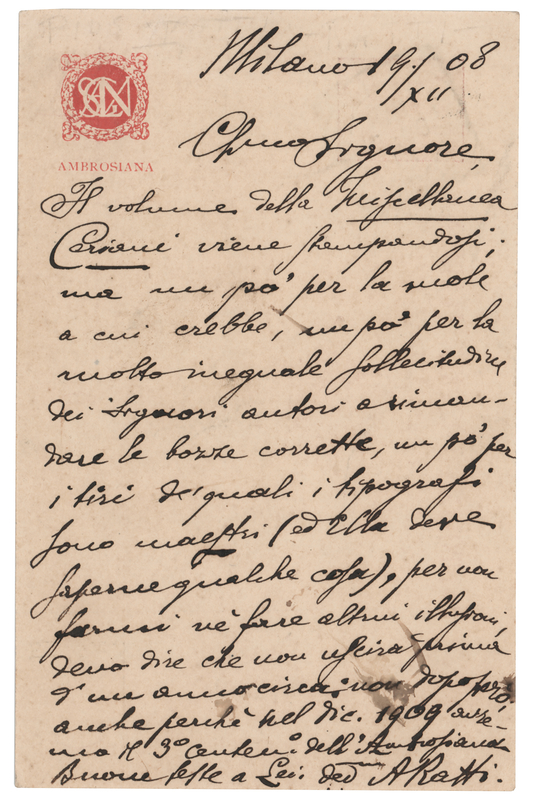 Milano 19/XII 08
AMBROSIANA
Ch.mo Signore,
Il volume della Miscellanea
Ceriani viene stampandosi;
ma un po' per la mole
a cui crebbe, un po' per la
molto ineguale sollecitudine
dei Signori autori a riman-
dare le bozze corrette, un po' per
i tiri de' quali i tipografi
sono maestri (ed Ella deve
saperne qualche cosa), per non
farmi nè fare altrui illusioni,
devo dire che non uscirà prima
d'un anno circa: non dopo però
anche perchè nel dic. 1909 avre-
mo il 3º centen.º dell'Ambrosiana
Buone feste a Lei. A Ratti.